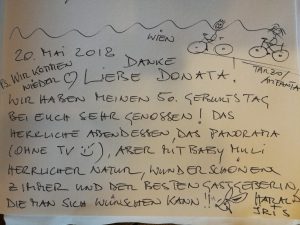 WIEN
20. MAI 2018. DANKE
WIR KOMMEN WIEDER ♡ LIEBE DONATA.
WIR HABEN MEINEN 50. GEBURTSTAG
BEI EUCH SEHR GENOSSEN! DAS
HERRLICHE ABENDESSEN, DAS PANORAMA
(OHNE TV ☺), ABER MIT BABY MULI
HERRLICHER NATUR, WUNDERSCHÖNEN
ZIMMER UND DER BESTEN GASTGEBERIN,
DIE MAN SICH WÜNSCHEN KANN!!
HARALD
IRIS